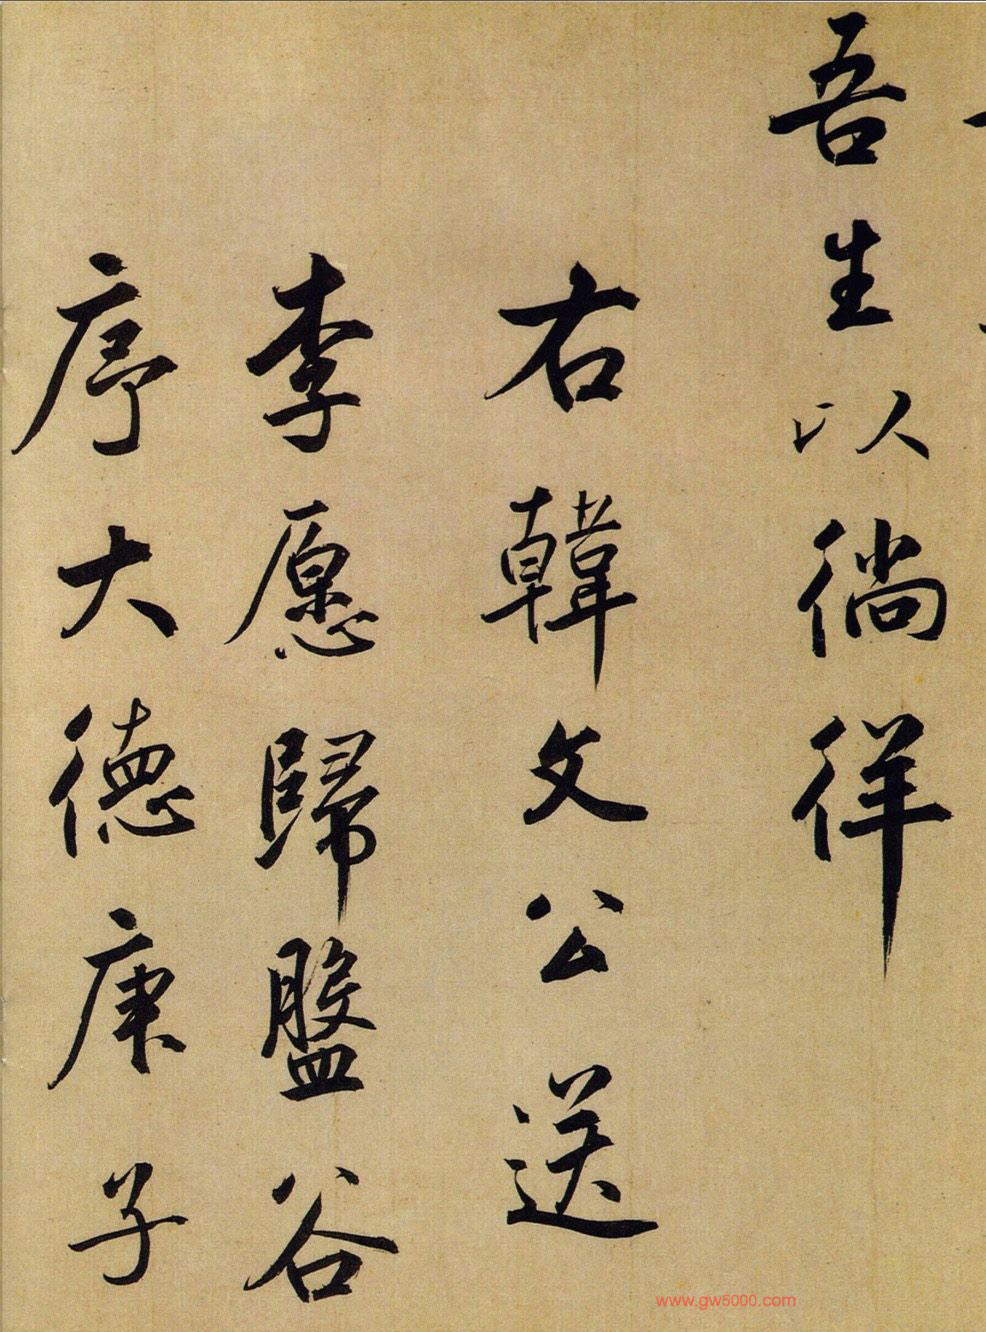 吾生以徜徉
右韓文公送
李愿歸盤谷
序大德庚子
www.gw5000.com